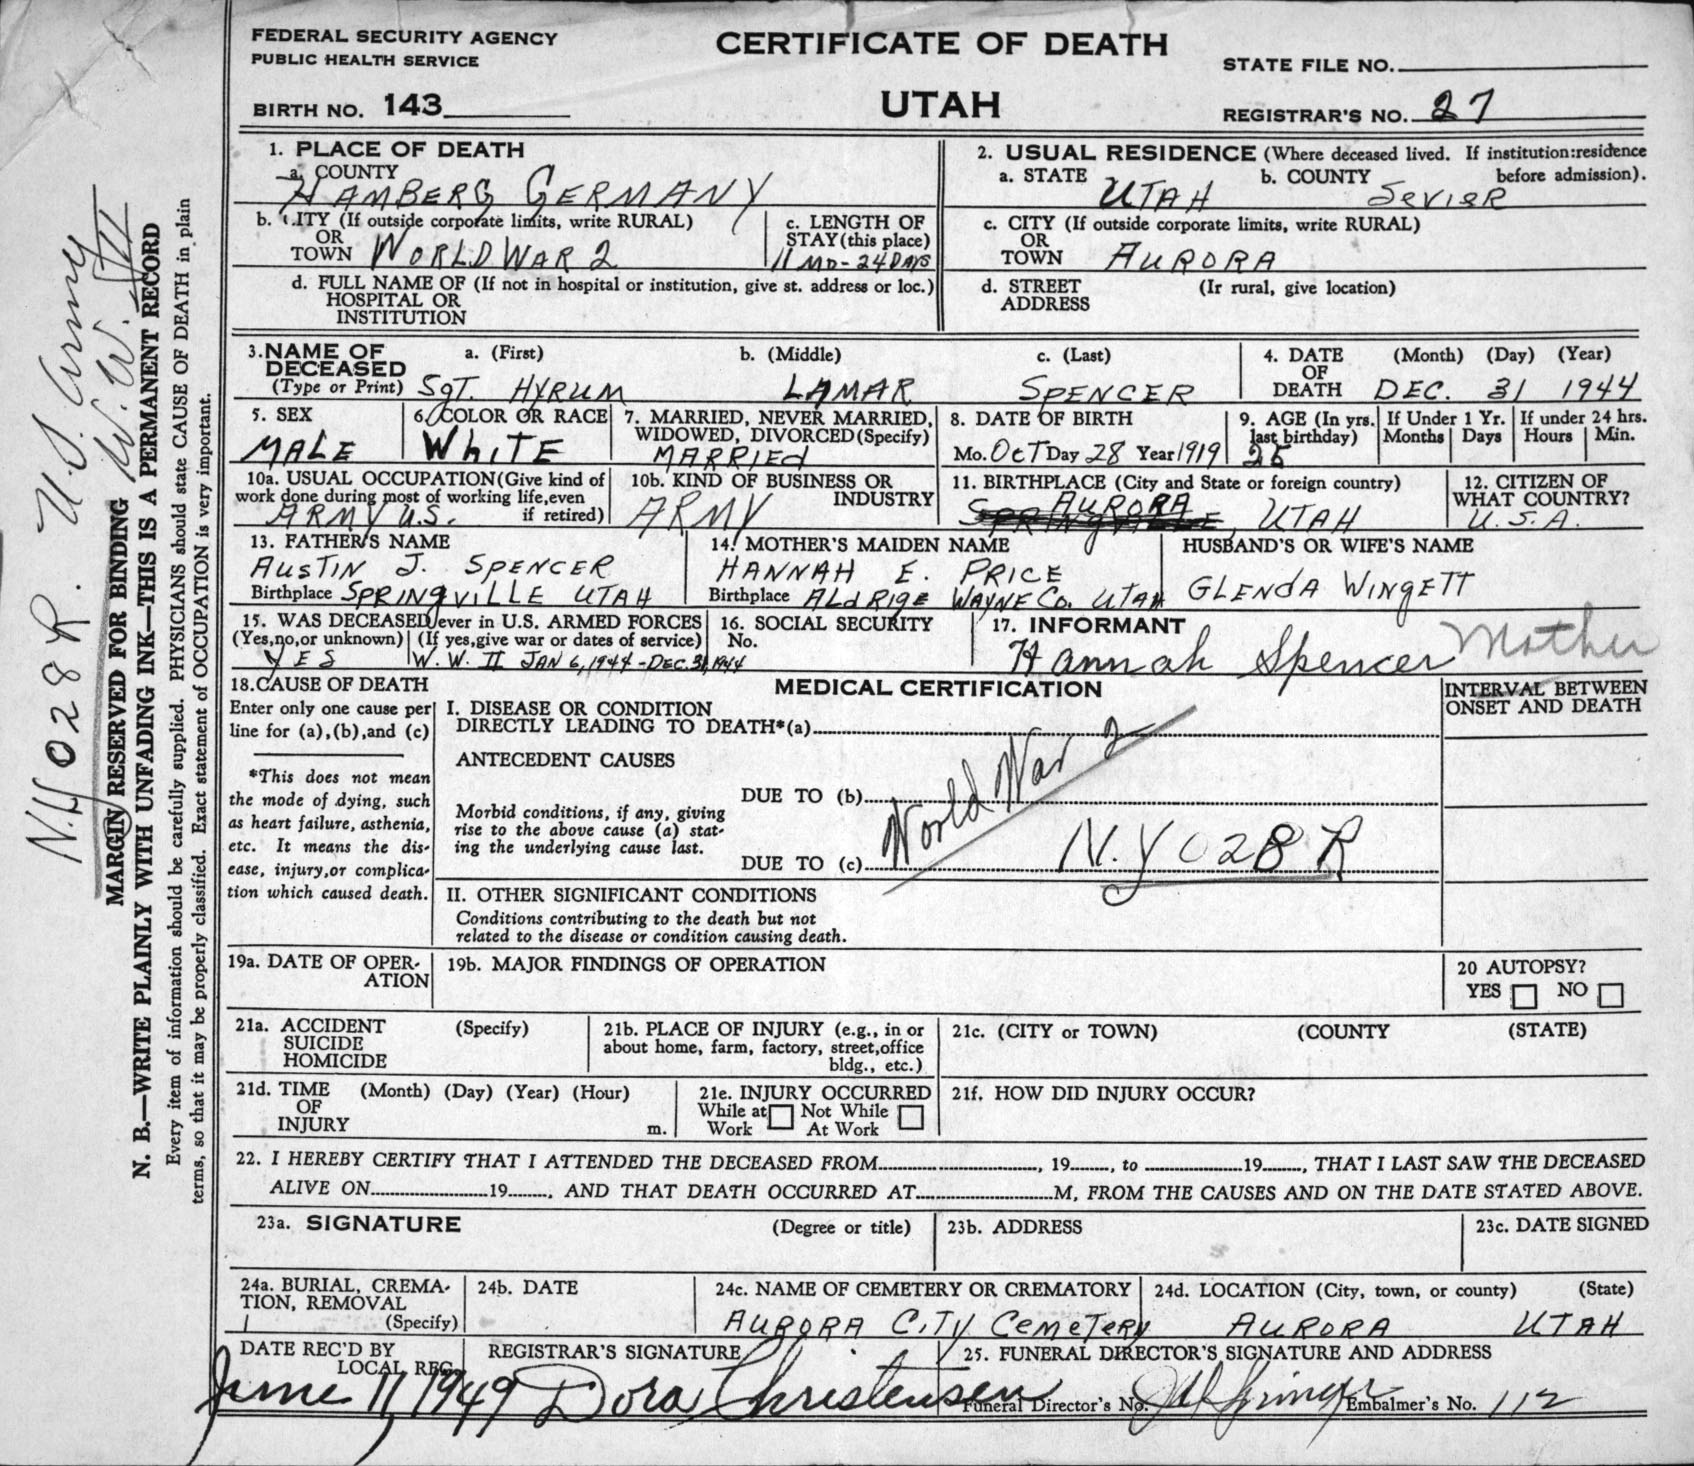 FEDERAL SECURITY AGENCY
PUBLIC HEALTH SERVICE
CERTIFICATE OF DEATH
STATE FILE NO.
BIRTH NO. 143
UTAH
REGISTRAR'S NO. 27
1. PLACE OF DEATH
a. COUNTY
HAMBERG GERMANY
2. USUAL RESIDENCE (Where deceased lived. If institution:residence before admission).
a. STATE UTAH b. COUNTY SEVIER
b. CITY (If outside corporate limits, write RURAL)
OR
TOWN WORLD WAR 2
c. LENGTH OF
STAY(this place)
11 MO - 24 DAYS
c. CITY (If outside corporate limits, write RURAL)
OR
TOWN AURORA
d. FULL NAME OF (If not in hospital or institution, give st. address or loc.)
HOSPITAL OR
INSTITUTION
d. STREET (Ir rural, give location)
ADDRESS
3. NAME OF DECEASED
(Type or Print)
a. (First) b. (Middle) c. (Last)
SGT. HYRUM LAMAR SPENCER
4. DATE (Month) (Day) (Year)
OF
DEATH DEC. 31 1944
5. SEX
MALE
6. COLOR OR RACE
WHITE
7. MARRIED, NEVER MARRIED,
WIDOWED, DIVORCED(Specify)
MARRIED
8. DATE OF BIRTH
Mo. OCT Day 28 Year 1919
9. AGE (In yrs.
last birthday)
25
If Under 1 Yr.
Months Days
If under 24 hrs.
Hours Min.
10a. USUAL OCCUPATION(Give kind of
work done during most of working life,even
if retired)
ARMY U.S.
10b. KIND OF BUSINESS OR
INDUSTRY
ARMY
11. BIRTHPLACE (City and State or foreign country)
AURORA
SPRINGVILLE, UTAH
12. CITIZEN OF
WHAT COUNTRY?
U.S.A.
13. FATHER'S NAME
AUSTIN J. SPENCER
Birthplace SPRINGVILLE UTAH
14. MOTHER'S MAIDEN NAME
HANNAH E. PRICE
Birthplace ALDRIGE WAYNE CO. UTAH
HUSBAND'S OR WIFE'S NAME
GLENDA WINGETT
15. WAS DECEASED ever in U.S. ARMED FORCES
(Yes,no,or unknown) (If yes,give war or dates of service)
YES W.W. II JAN 6, 1944 - DEC. 31, 1944
16. SOCIAL SECURITY
No.
17. INFORMANT
Hannah Spencer Mother
18. CAUSE OF DEATH
Enter only one cause per
line for (a),(b),and (c)
*This does not mean
the mode of dying, such
as heart failure, asthenia,
etc. It means the dis-
ease, injury,or complica-
tion which caused death.
MEDICAL CERTIFICATION
INTERVAL BETWEEN
ONSET AND DEATH
I. DISEASE OR CONDITION
DIRECTLY LEADING TO DEATH*(a)
ANTECEDENT CAUSES
Morbid conditions, if any, giving
rise to the above cause (a) stat-
ing the underlying cause last.
DUE TO (b)
DUE TO (c)
World War 2
N.Y028R
II. OTHER SIGNIFICANT CONDITIONS
Conditions contributing to the death but not
related to the disease or condition causing death.
19a. DATE OF OPER-
ATION
19b. MAJOR FINDINGS OF OPERATION
20 AUTOPSY?
YES NO
21a. ACCIDENT (Specify)
SUICIDE
HOMICIDE
21b. PLACE OF INJURY (e.g., in or
about home, farm, factory, street,office
bldg., etc.)
21c. (CITY or TOWN) (COUNTY (STATE)
21d. TIME (Month) (Day) (Year) (Hour)
OF
INJURY m.
21e. INJURY OCCURRED
While at Work Not While At Work
21f. HOW DID INJURY OCCUR?
22. I HEREBY CERTIFY THAT I ATTENDED THE DECEASED FROM, 19, to 19, THAT I LAST SAW THE DECEASED
ALIVE ON 19, AND THAT DEATH OCCURRED AT M, FROM THE CAUSES AND ON THE DATE STATED ABOVE.
23a. SIGNATURE (Degree or title)
23b. ADDRESS
23c. DATE SIGNED
24a. BURIAL, CREMA-
TION, REMOVAL
(Specify)
24b. DATE
24c. NAME OF CEMETERY OR CREMATORY
AURORA CITY CEMETERY
24d. LOCATION (City, town, or county) (State)
AURORA UTAH
DATE REC'D BY
LOCAL REG.
June 11, 1949
REGISTRAR'S SIGNATURE
Dora Christensen
25. FUNERAL DIRECTOR'S SIGNATURE AND ADDRESS
Funeral Director's No. Embalmer's No. 112
N.Y028R. U.S. Army
W.W. II
MARGIN RESERVED FOR BINDING
N. B.—WRITE PLAINLY WITH UNFADING INK—THIS IS A PERMANENT RECORD
Every item of information should be carefully supplied. PHYSICIANS should state CAUSE OF DEATH in plain
terms, so that it may be properly classified. Exact statement of OCCUPATION is very important.